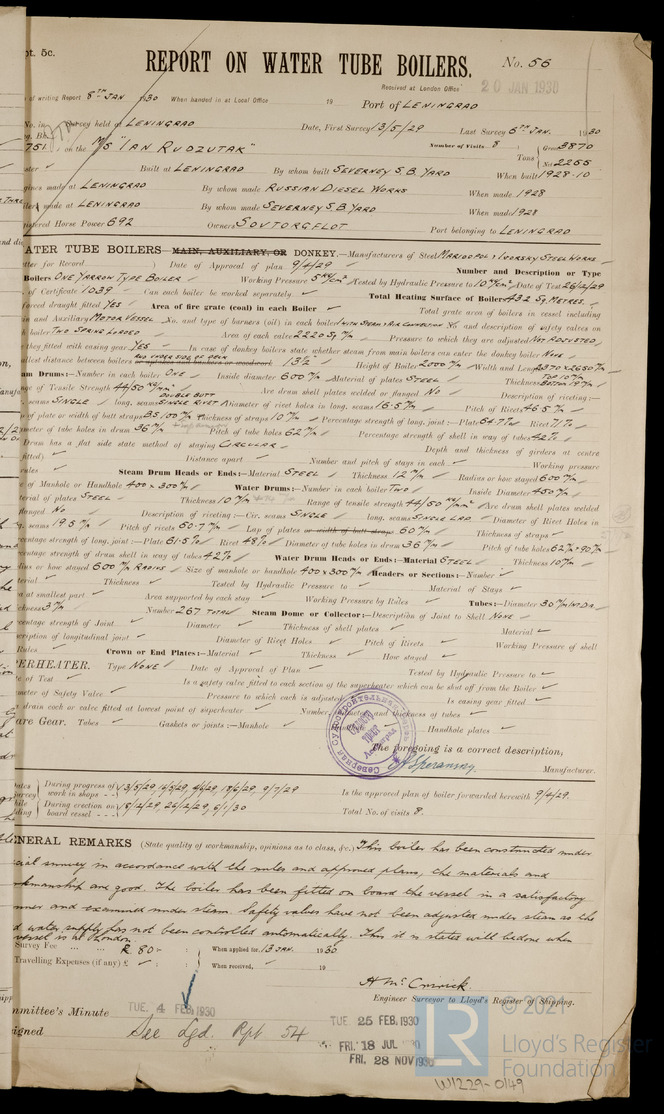 pt. 5c.
REPORT ON WATER TUBE BOILERS.
No. 56
Received at London Office 20 JAN 1930
of writing Report 8TH JAN 1930 When handed in at Local Office 19 Port of LENINGRAD
No. in Survey held at LENINGRAD Date, First Survey 13/5/29 Last Survey 6TH JAN. 1930
Number of Visits 8
751 on the M/S "IAN RUDZUTAK" Tons Gross 3870 Net 2255
Built at LENINGRAD By whom built SEVERNEY S.B. YARD When built 1928-10
made at LENINGRAD By whom made RUSSIAN DIESEL WORKS When made 1928
made at LENINGRAD By whom made SEVERNEY S.B. YARD When made 1928
Horse Power 692 Owners SOVTORGFLOT Port belonging to LENINGRAD
ATER TUBE BOILERS MAIN, AUXILIARY, OR DONKEY.—Manufacturers of Steel MARIOPOL & IJORSKY STEEL WORKS
Date of Approval of plan 9/4/29 Number and Description or Type
Boilers ONE YARROW TYPE BOILER Working Pressure Tested by Hydraulic Pressure to Date of Test 26/2/29
of Certificate 1039 Can each boiler be worked separately ✓ Total Heating Surface of Boilers 432 SQ METRES.
forced draught fitted YES Area of fire grate (coal) in each Boiler ✓ Total grate area of boilers in vessel including
in and Auxiliary MOTOR VESSEL No. and type of burners (oil) in each boiler and description of safety valves on
boiler TWO SPRING LOADED Area of each valve Pressure to which they are adjusted NOT ADJUSTED
they fitted with easing gear YES In case of donkey boilers state whether steam from main boilers can enter the donkey boiler NONE
distance between boilers Height of Boiler Width and Length
am Drums:—Number in each boiler ONE Inside diameter 600 m/m Material of plates STEEL Thickness
of Tensile Strength Are drum shells welded or flanged NO Description of riveting:—
seams SINGLE long. seams DOUBLE BUTT SINGLE RIVET Diameter of rivet holes in long. seams 16.5 m/m Pitch of Rivets 46.5 m/m
of plate or width of butt straps Thickness of straps 10 m/m Percentage strength of long. joint:—Plate 64.7% Rivet 71%
meter of tube holes in drum 36 m/m Pitch of tube holes 62 m/m Percentage strength of shell in way of tubes 42%
Drum has a flat side state method of staying CIRCULAR Depth and thickness of girders at centre
fitted) ✓ Distance apart ✓ Number and pitch of stays in each ✓ Working pressure
Steam Drum Heads or Ends:—Material STEEL Thickness 12 m/m Radius or how stayed 600 m/m
of Manhole or Handhole 400 x 300 m/m Water Drums:—Number in each boiler TWO Inside Diameter 450 m/m
of plates STEEL Thickness 10 m/m Range of tensile strength Are drum shells welded
flanged NO Description of riveting:—Cir. seams SINGLE long. seams SINGLE LAP Diameter of Rivet Holes in
seams 19.5 m/m Pitch of rivets 60.7 m/m Lap of plates or width of butt straps 60 m/m Thickness of straps ✓
centage strength of long. joint:—Plate 61.5% Rivet 48% Diameter of tube holes in drum 36 m/m Pitch of tube holes 62 m/m × 90 m/m
centage strength of drum shell in way of tubes 42% Water Drum Heads or Ends:—Material STEEL Thickness 10 m/m
or how stayed 600 m/m RADIUS Size of manhole or handhole 400 x 300 m/m Headers or Sections:—Number ✓
Thickness ✓ Tested by Hydraulic Pressure to ✓ Material of Stays ✓
at smallest part ✓ Area supported by each stay ✓ Working Pressure by Rules ✓ Tubes:—Diameter
Number 267 TOTAL Steam Dome or Collector:—Description of Joint to Shell NONE
centage strength of Joint ✓ Diameter ✓ Thickness of shell plates ✓ Material ✓
cription of longitudinal joint ✓ Diameter of Rivet Holes ✓ Pitch of Rivets ✓ Working Pressure of shell
Rules ✓ Crown or End Plates:—Material ✓ Thickness ✓ How stayed ✓
PERHEATER. Type NONE ✓ Date of Approval of Plan ✓ Tested by Hydraulic Pressure to ✓
of Test ✓ Is a safety valve fitted to each section of the superheater which can be shut off from the Boiler ✓
meter of Safety Valve ✓ Pressure to which each is adjusted ✓ Is easing gear fitted ✓
drain cock or valve fitted at lowest point of superheater ✓ Number, diameter, and thickness of tubes ✓
are Gear. Tubes ✓ Gaskets or joints:—Manhole ✓ Handhole plates ✓
The foregoing is a correct description,
Manufacturer.
During progress of work in shops - - Is the approved plan of boiler forwarded herewith 9/4/29.
During erection on board vessel - - - 18/2/29, 26/2/29, 6/1/30 Total No. of visits 8.
ENERAL REMARKS (State quality of workmanship, opinions as to class, &c.) This boiler has been constructed under
cial survey in accordance with the rules and approved plans, the materials and
kmanship are good. The boiler has been fitted on board the vessel in a satisfactory
nner and examined under steam. Safety valves have not been adjusted under steam as the
d water supply has not been controlled automatically. This it is stated will be done when
vessel is at London.
Survey Fee ... ... R. 80 - : When applied for, 13 JAN. 1930
Travelling Expenses (if any) £ : When received, 19
Engineer Surveyor to Lloyd's Register of Shipping.
mmittee's Minute TUE. 4 FEB 1930 TUE 25 FEB 1930
signed See Lgd. Rpt 54 FRI. 18 JUL 1930
FRI. 28 NOV 1930
© 2021
LR
Lloyd's Register
Foundation
W1229-0149